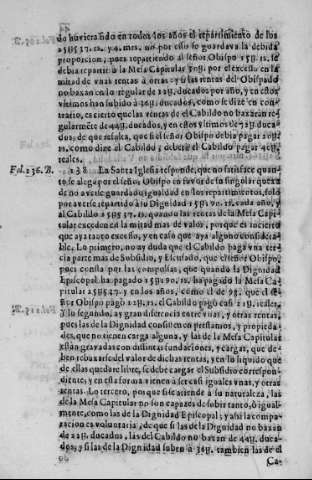 do huviera, no en todos los años el repartimiento de los
2585 17. rs. y 4. mrs. no por esso se guardava la debida
proporcion, pues repartiendo al señor Obispo 15U. rs. se
debia repartir à la Mesa Capitular 30U. por el excesso en la
mitad de vnas rentas à otras: y si las rentas del Obispado
no baxan en lo regular de 22U. ducados por año, y en estos
vltimos han subido à 36U. ducados, como se dize en con-
trario, es cierto que las rentas de el Cabildo no baxarian re-
gularmẽte de 44U. ducados, y en estos vltimos de 72U. duca-
dos; de que resulta, que si el señor Obispo debia pagar
rs. como dize el Cabildo, deberia el Cabildo pagar
reales.
Fol. 236. B. 138 La Santa Iglesia responde, que no satisface quan-
to se alega por el señor Obispo en favor de su singularidad,
porque no se aya guardado igualdad en los repartimientos,
por averse repartido à su Dignidad rs. cada año, y
al Cabildo quando las rentas de la Mesa Capi-
tular exceden en la mitad mas de valor, porque es incierto
que aya tanto excesso, y en caso que aya alguno considera-
ble. Lo primero, no ay duda que el Cabildo paga vna ter-
cia parte mas de Subsidio, y Escusado, que el señor Obispo,
pues consta por las compulsas, que quando la Dignidad
Episcopal ha pagado rs. ha pagado la Mesa Ca-
pitular y en los años, como el de 98. que el se-
ñor Obispo pagò rs. el Cabildo pagò casi reales.
Y lo segundo, ay gran diferencia entre vnas, y otras rentas,
pues las de la Dignidad consisten en prestamos, y propieda-
des, que no tienen carga alguna, y las de la Mesa Capitular
estàn gravadas con distintas fundaciones, y cargas, que de-
ben rebaxarse del valor de dichas rentas, y en lo liquido que
de ellas quedare libre, se debe cargar el Subsidio correspon-
diente; y en esta forma vienen à ser casi iguales vnas, y otras
rentas. Lo tercero, porque si se atiende à su naturaleza, las
de la Mesa Capitular no son capaces de subir tanto, ò igual-
mente, como las de la Dignidad Episcopal; y assi la compa-
racion es voluntaria, de que si las de la Dignidad no baxan
de 22U. ducados, las del Cabildo no baxan de 44U. duca-
dos, y si las de la Dignidad suben à 36U. tambien las de el
Ca-